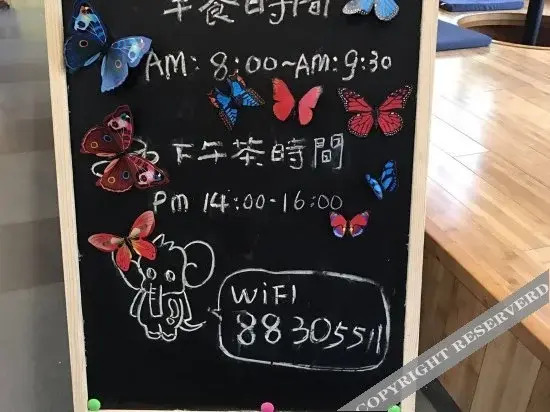 早餐時間
AM: 8:00~AM:9:30
下午茶時間
Pm 14:00-16:00
WiFI
88305511
COPYRIGHT RESERVERD